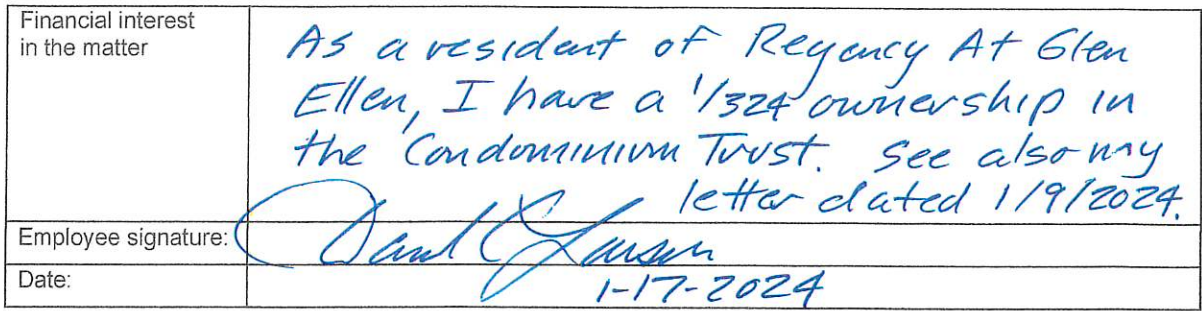 Financial interest
in the matter
As a resident of Regency At Glen
Ellen, I have a 1/324 ownership in
the Condominium Trust. See also my
letter dated 1/9/2024.
Employee signature:
Date:
1-17-2024